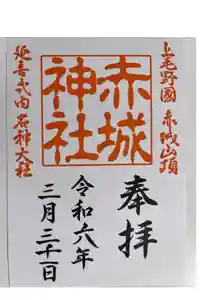 上毛野國 赤城山頂
赤城神社
延喜式内 名神大社
奉拝
令和六年
三月三十一日